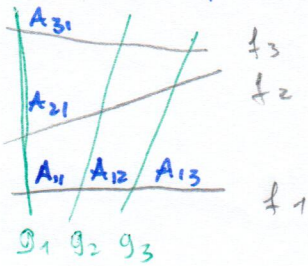 A31 f3
A21 f2
A11 A12 A13 f1
g1 g2 g3